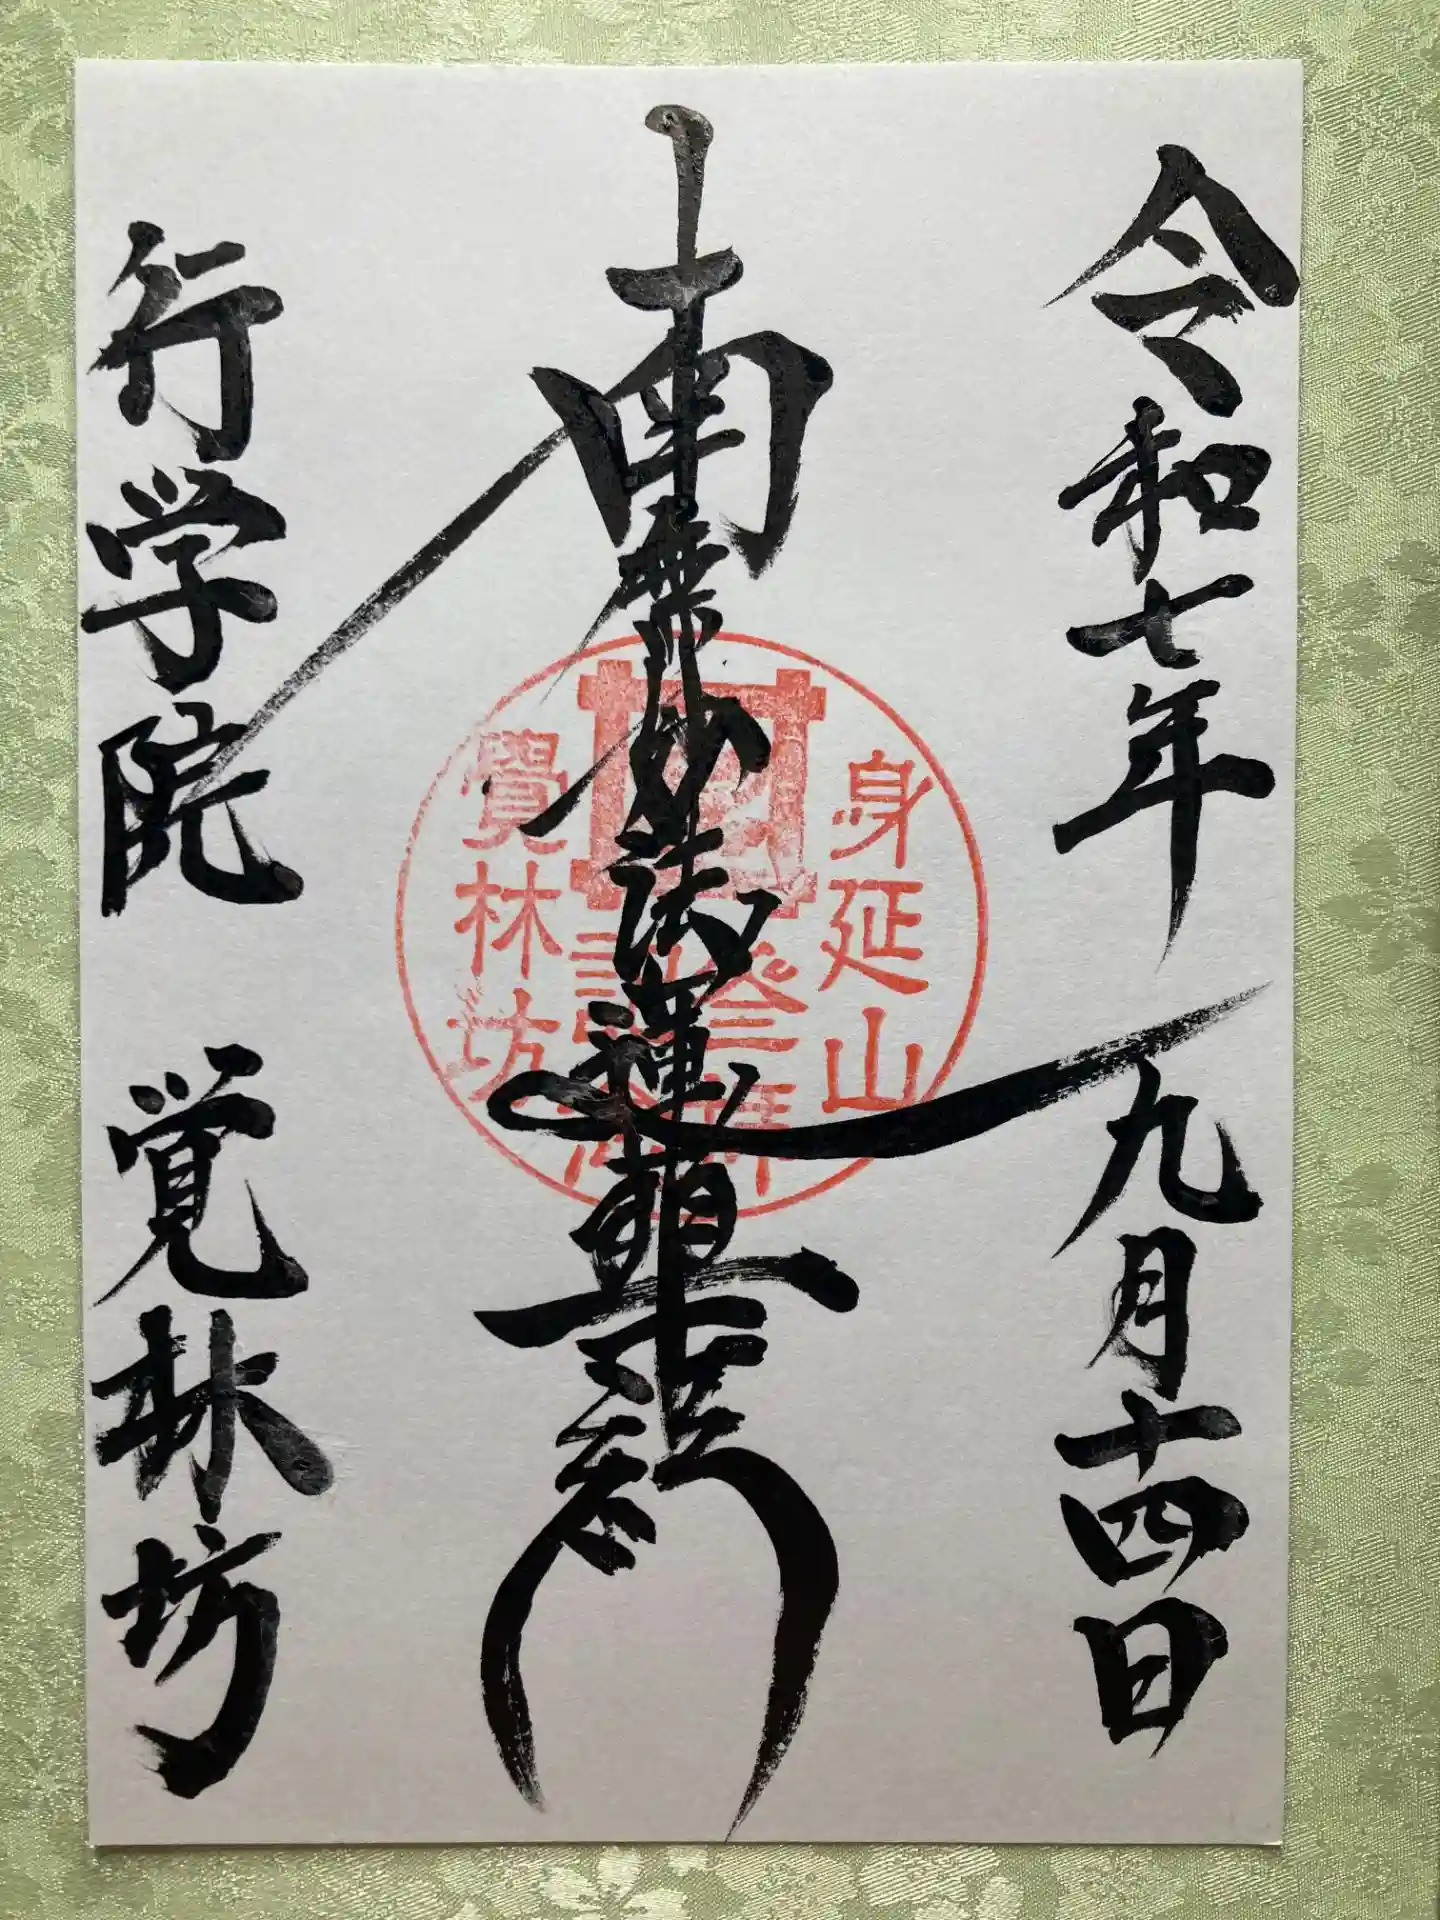 令和七年 九月十四日
南無妙法蓮華経
行学院 覚林坊
身延山
參拜
記念
覺林坊